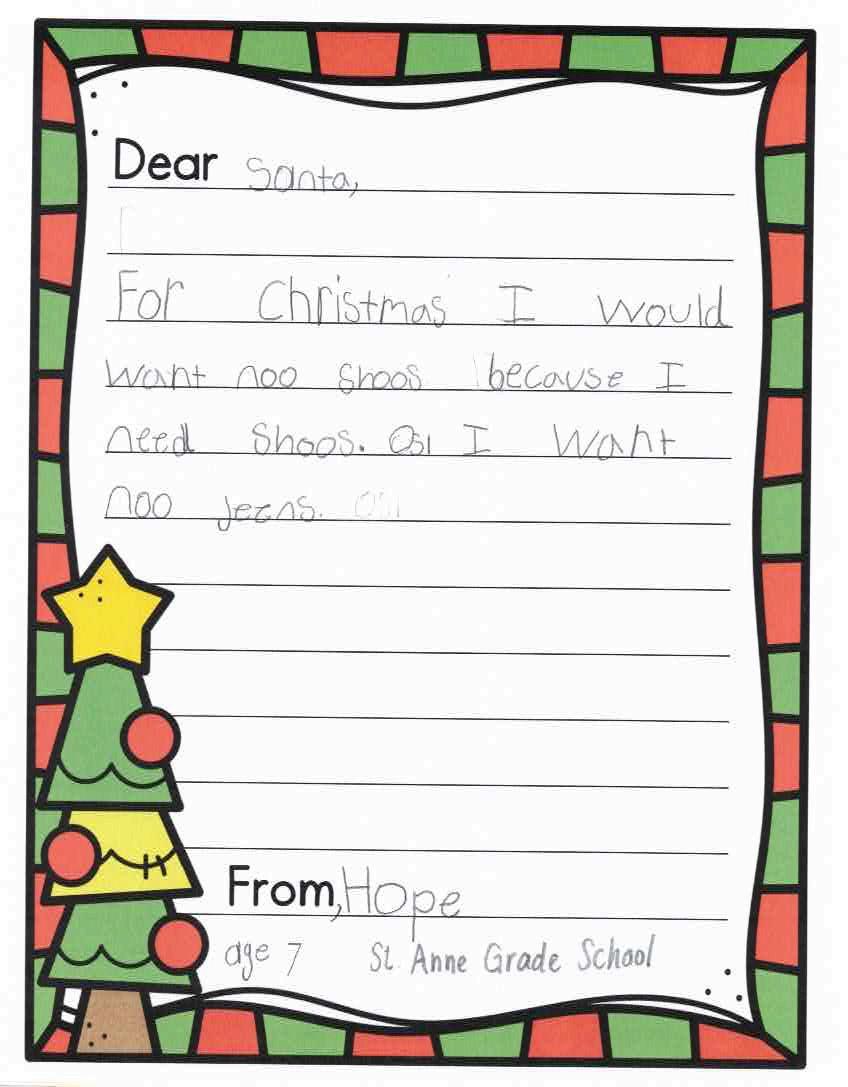 Dear Santa,
For Christmas I would
want noo shoos because I
need shoos. Osl I want
noo jeens.
From, Hope
age 7 St. Anne Grade School